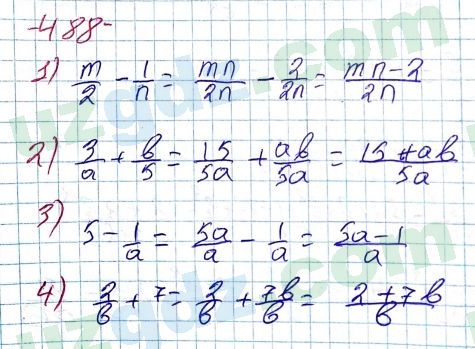 -488-
1) m/2 - 1/n = mn/2n - 2/2n = mn-2/2n
2) 3/a + b/5 = 15/5a + ab/5a = 15+ab/5a
3) 5 - 1/a = 5a/a - 1/a = 5a-1/a
4) 2/b + 7 = 2/b + 7b/b = 2+7b/b
uzgdz.com